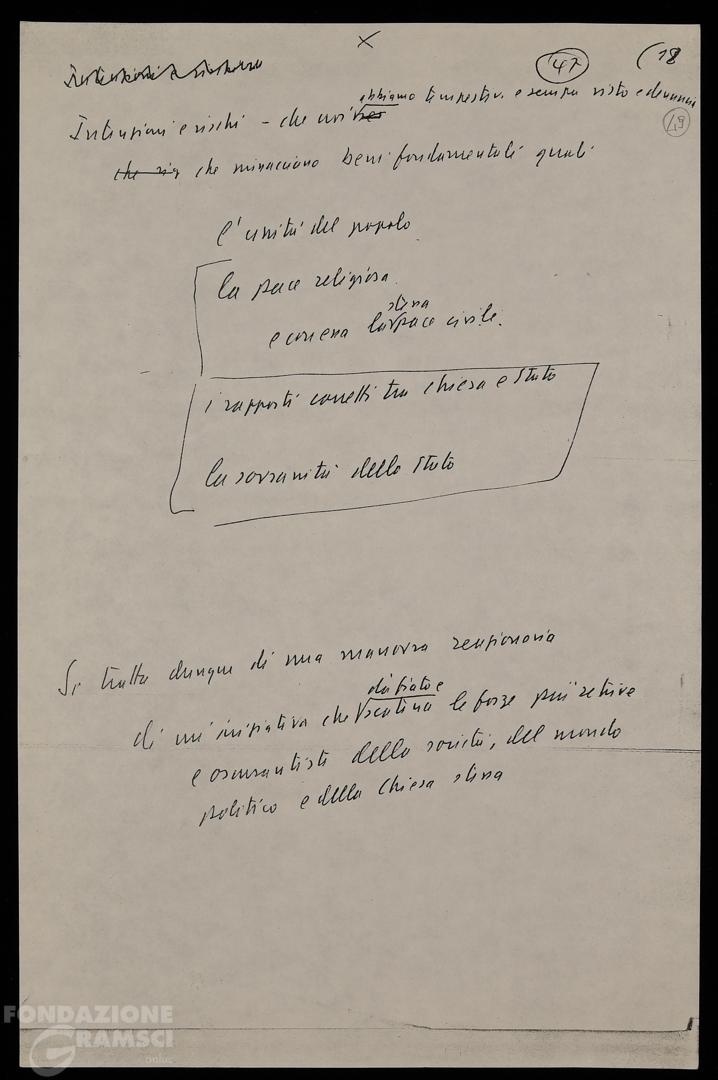 ×
47
18
19
abbiamo tempestiv. e sempre visto e denunci
Intenzioni e rischi - che noi
che che minacciano beni fondamentali quali
l'unità del popolo
la pace religiosa
stessa
e con essa la pace civile.
i rapporti corretti tra chiesa e Stato
la sovranità dello Stato
Si tratta dunque di una manovra reazionaria
dà fiato e
di un'iniziativa che scatena le forze più retrive
e oscurantiste della società, del mondo
politico e della Chiesa stessa
FONDAZIONE
GRAMSCI
onlus